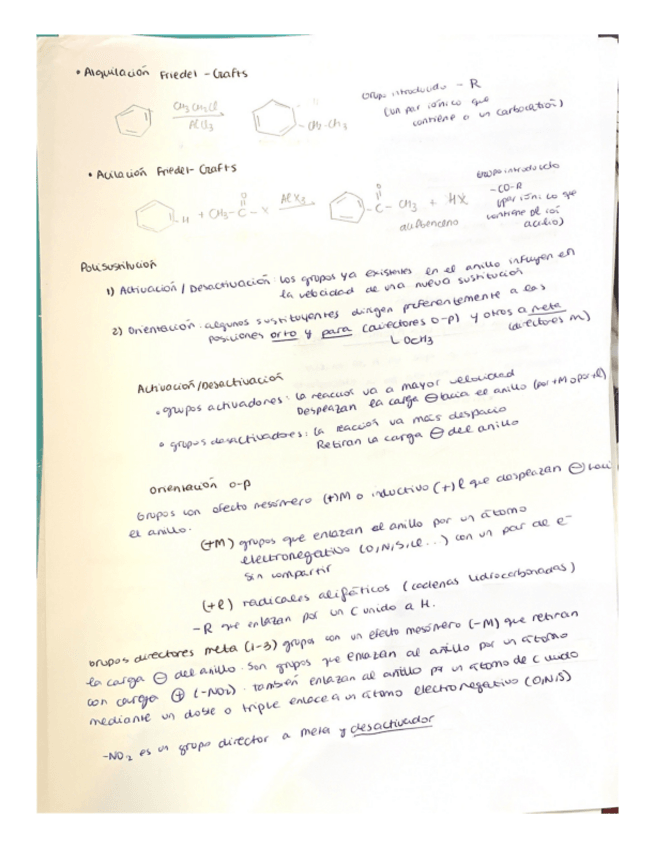 • Alquilación Friedel-Crafts
CH3CH2Cl
AlCl3
- CH2-CH3
Grupo introducido - R
(un par iónico que
contiene a un carbocatión)
• Acilación Friedel-Crafts
H + CH3 - C - X
O
AlX3
O
- C - CH3 + HX
Grupo introducido
-CO-R
(par iónico que
contiene el ión
acilio)
Polisustitución
1) Activación / Desactivación: los grupos ya existentes en el anillo influyen en
la velocidad de una nueva sustitución
2) Orientación: algunos sustituyentes dirigen preferentemente a las
posiciones orto y para (directores o-p) y otros a meta
(directores m)
OCH3
Activación/Desactivación
• grupos activadores: la reacción va a mayor velocidad
Desplazan la carga ⊖ hacia el anillo (por +M o por +I)
• grupos desactivadores: la reacción va más despacio
Retiran la carga ⊖ del anillo
Orientación o-p
Grupos con efecto mesómero (+)M o inductivo (+)I que desplazan ⊖ haci
el anillo.
(+M) grupos que enlazan el anillo por un átomo
electronegativo (O,N,S,Cl...) con un par de e-
sin compartir
(+I) radicales alifáticos (cadenas hidrocarbonadas)
-R que enlazan por un C unido a H.
Grupos directores meta (1-3) grupos con un efecto mesómero (-M) que retiran
la carga ⊖ del anillo. Son grupos que enlazan al anillo por un átomo
con carga ⊕ (-NO2). También enlazan al anillo por un átomo de C unido
mediante un doble o triple enlace a un átomo electronegativo (O,N,S)
-NO2 es un grupo director a meta y desactivador